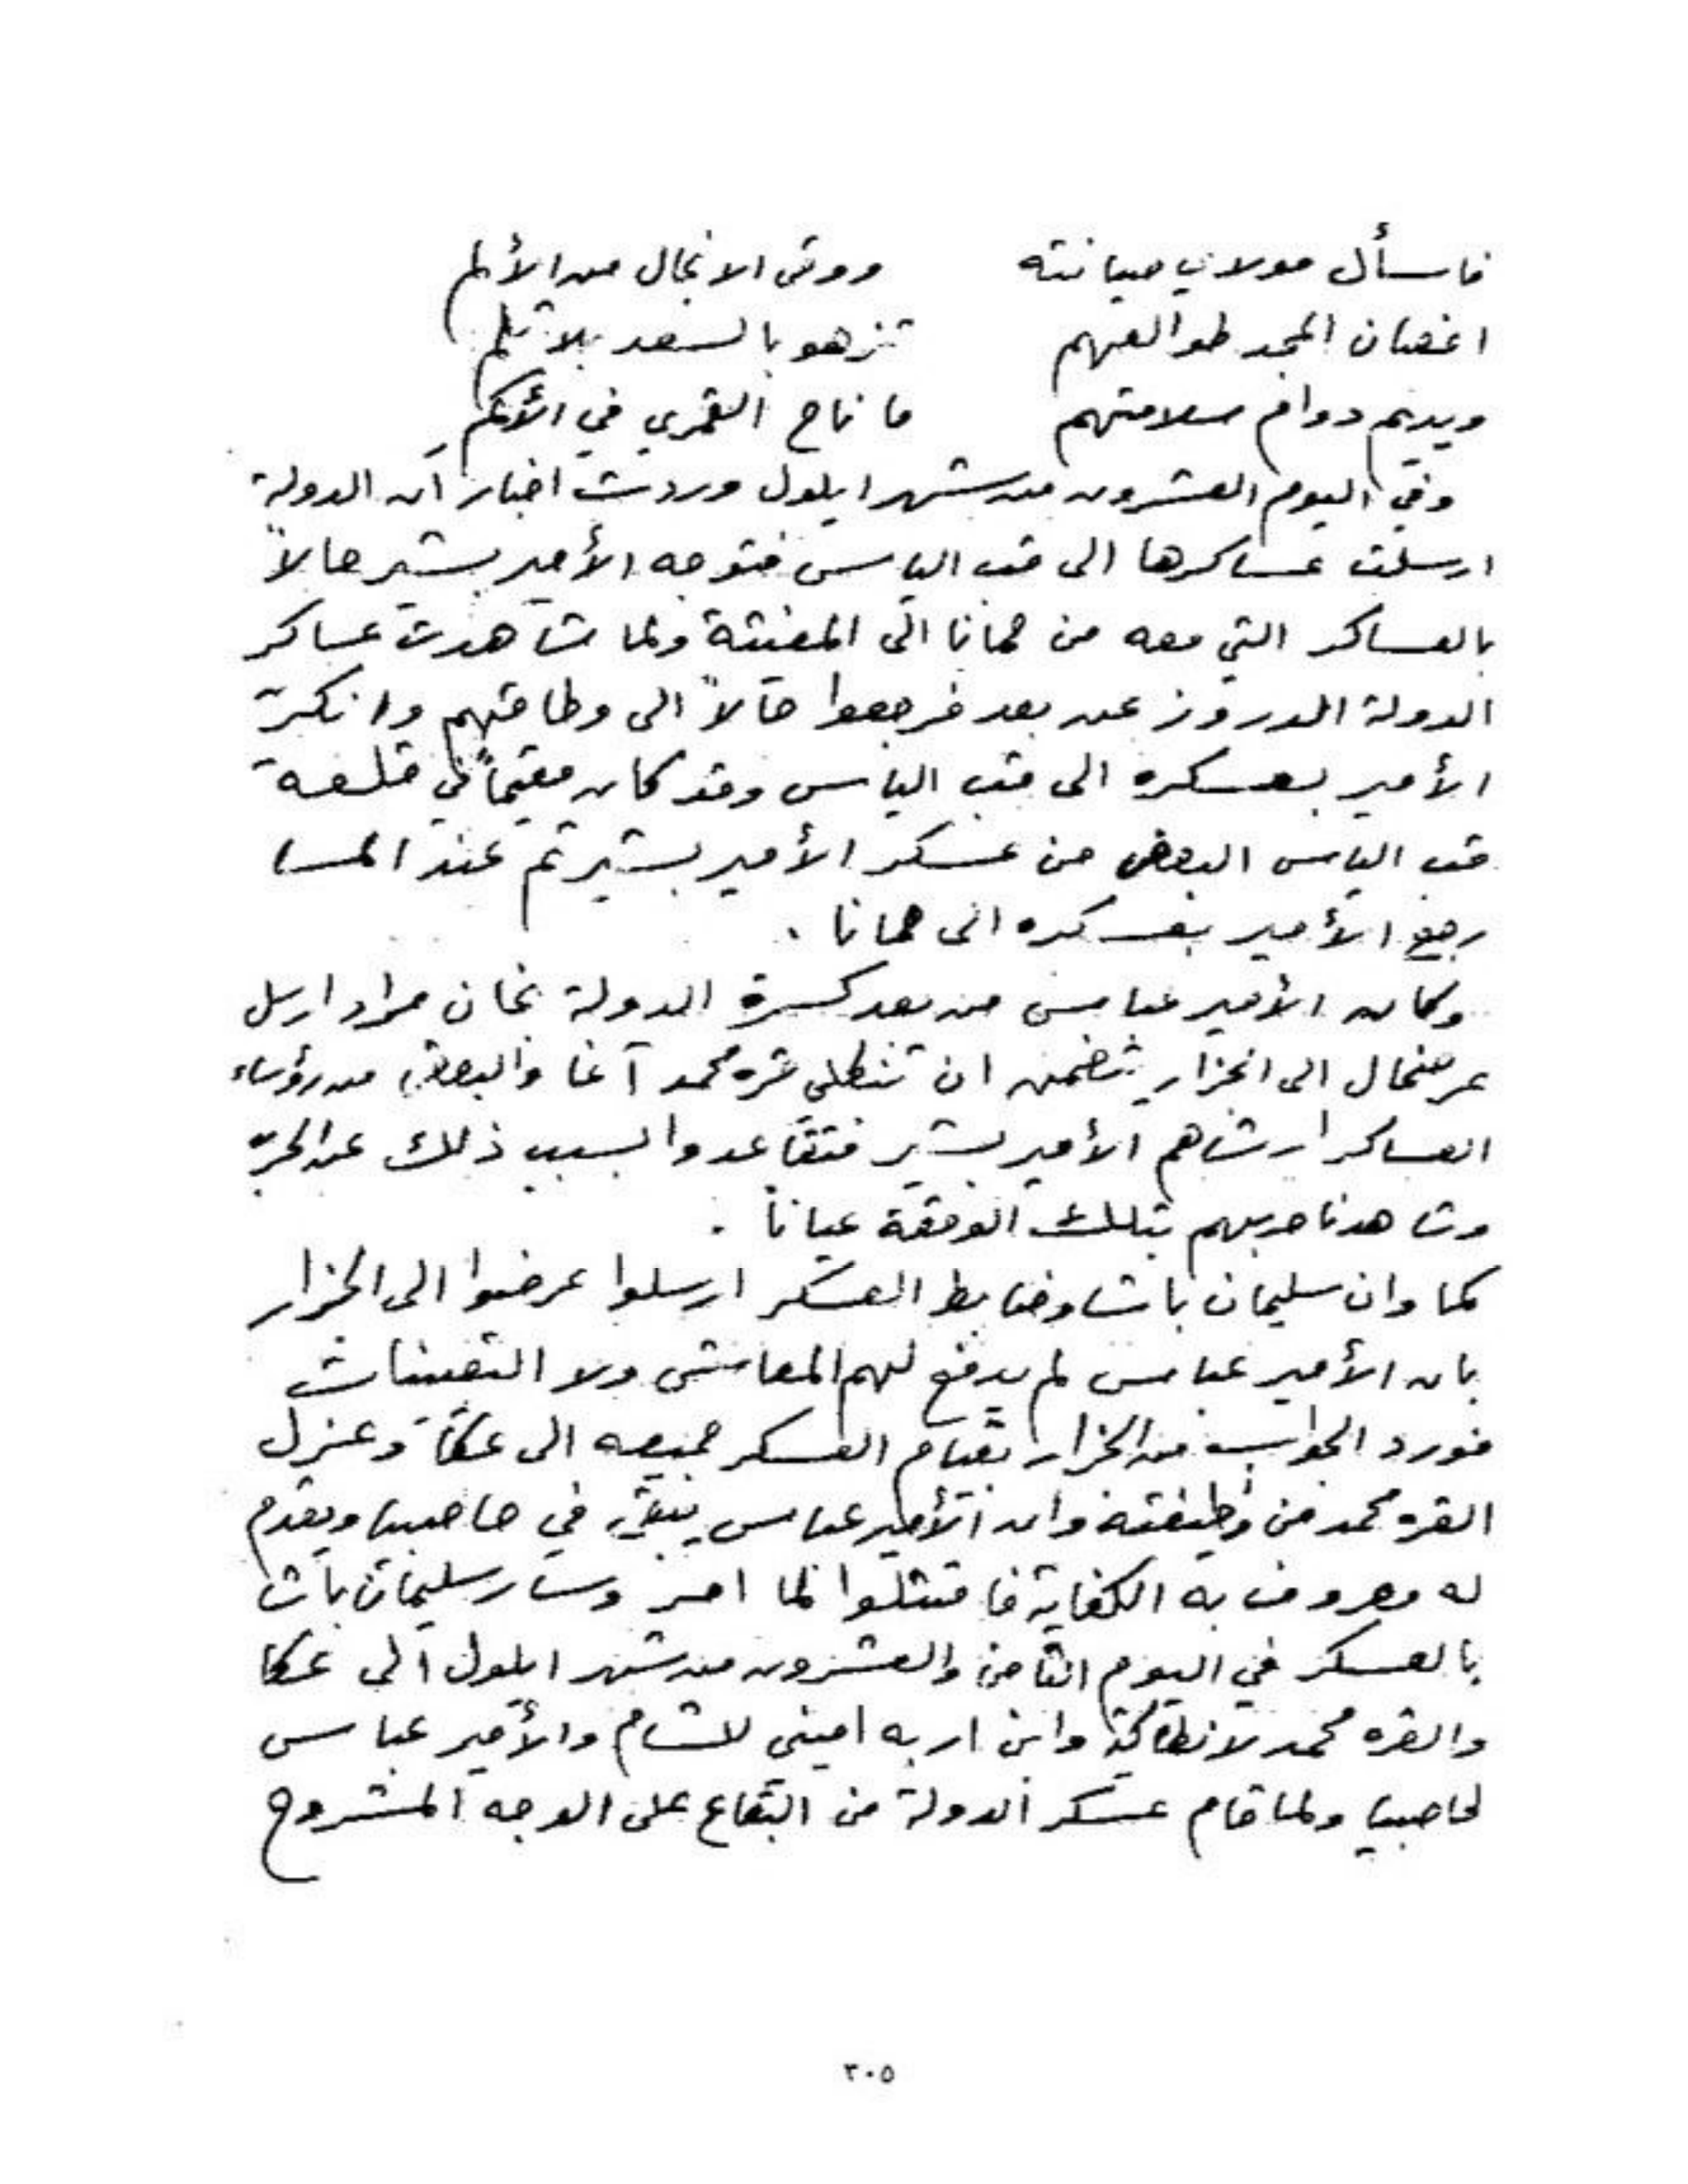 فاسأل مولاي صيانته ووقى الانجال من الألم
اغصان المجد طوالعهم تزهو بالسعد بلا ثلم
ويديم دوام سلامتهم ما ناح القمري في الأكم
وفي اليوم العشرون من شهر ايلول وردت اخبار ان الدولة
ارسلت عساكرها الى قب الياس فتوجه الأمير بشير حالاً
بالعساكر التي معه من حمانا الى المغيثة ولما شاهدت عساكر
الدولة الدروز عن بعد فرجعوا حالاً الى وطاقهم وانكبّ
الأمير بعسكره الى قب الياس وقد كان مقيماً في قلعة
قب الياس البعض من عسكر الأمير بشير ثم عند المسا
رجع الأمير بعسكره الى حمانا .
وكان الأمير عباس من بعد كسرة الدولة بخان مراد ارسل
عرضحال الى الجزار يتضمن ان تنكلي قره محمد آغا والبعض من رؤساء
العساكر ارشاهم الأمير بشير فتقاعدوا بسبب ذلك عن الحرب
وشاهدنا حربهم بتلك الوقعة عياناً .
كما وان سليمان باشا وضابط العسكر ارسلوا عرضوا الى الجزار
بان الأمير عباس لم يدفع لهم المعاش ولا التعيينات
فورد الجواب من الجزار بقيام العسكر جميعه الى عكا وعزل
القره محمد من وظيفته وان الأمير عباس يبقى في حاصبيا ويقدم
له مصروف به الكفاية فامتثلوا لما امر وسار سليمان باشا
بالعسكر في اليوم الثامن والعشرون من شهر ايلول الى عكا
والقره محمد لانطاكية وابن اربه اميني للشام والأمير عباس
لحاصبيا ولما قام عسكر الدولة من البقاع على الوجه المشروح
٣٠٥